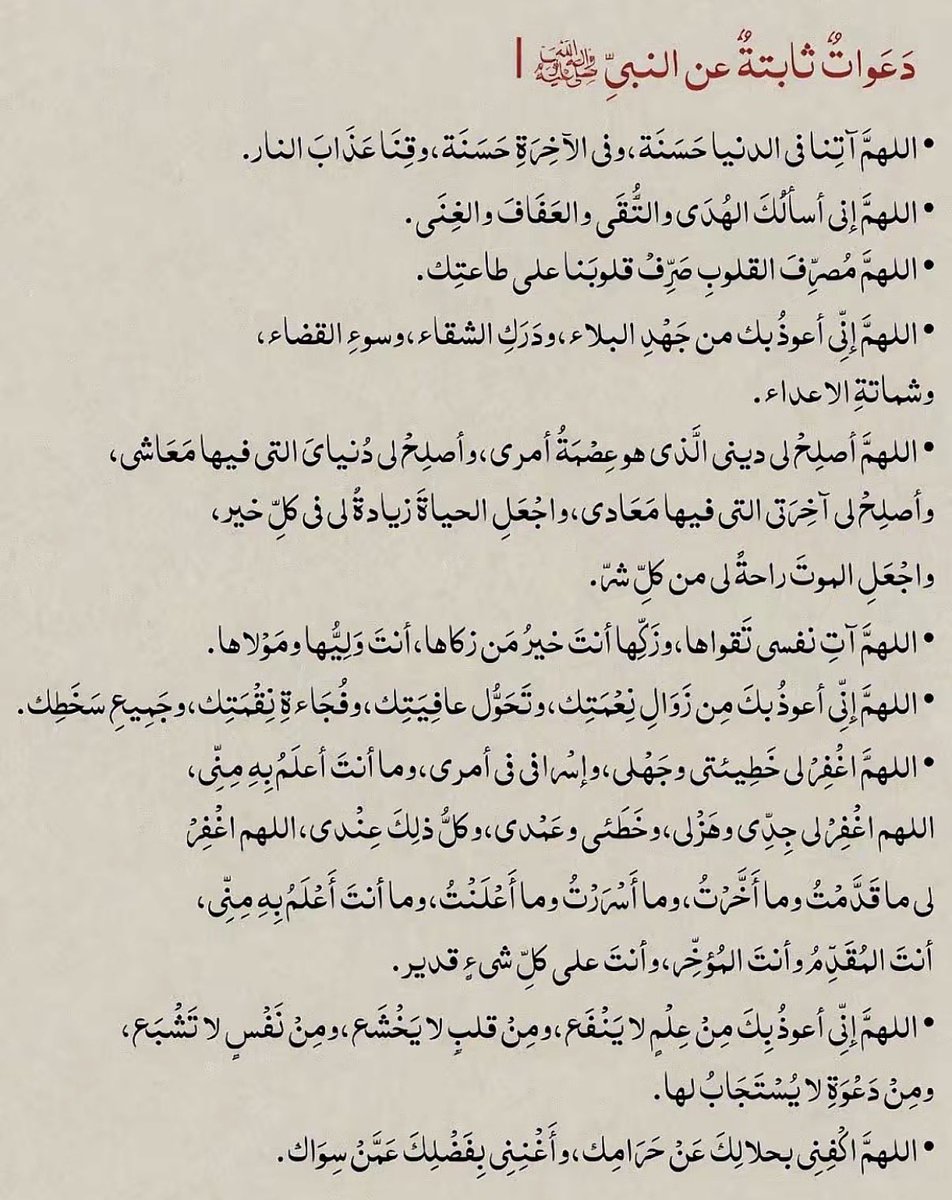 دَعَواتٌ ثابتةٌ عن النبيِّ ﷺ |
• اللهمَّ آتِنا فى الدنيا حَسَنَة، وفى الآخِرَةِ حَسَنَة، وقِنَا عَذَابَ النار.
• اللهمَّ إنى أسألُكَ الهُدَى والتُّقَى والعَفَافَ والغِنَى.
• اللهمَّ مُصرِّفَ القلوبِ صَرِّفْ قلوبَنا على طاعتِك.
• اللهمَّ إنِّى أعوذُ بك من جَهْدِ البلاء، ودَرَكِ الشقاء، وسوءِ القضاء،
وشماتةِ الاعداء.
• اللهمَّ أصلِحْ لى دينى الَّذى هو عِصْمَةُ أمرى، وأصلِحْ لى دُنياىَ التى فيها مَعَاشى،
وأصلِحْ لى آخِرَتى التى فيها مَعَادى، واجْعَلِ الحياةَ زيادةً لى فى كلِّ خير،
واجْعَلِ الموتَ راحةً لى من كلِّ شرّ.
• اللهمَّ آتِ نفسى تَقواها، وزَكِّها أنتَ خيرُ مَن زكاها، أنتَ وَلِيُّها ومَوْلاها.
• اللهمَّ إنِّى أعوذُ بكَ مِن زَوَالِ نِعْمَتِك، وتَحَوُّل عافِيَتِك، وفُجَاءةِ نِقْمَتِك، وجَمِيعِ سَخَطِك.
• اللهمَّ اغْفِرْ لى خَطِيئتى وجَهْلى، وإسْرافى فى أمرى، وما أنتَ أعلَمُ بِهِ مِنِّى،
اللهم اغْفِرْ لى جِدِّى وهَزْلى، وخَطَئى وعَمْدى، وكلُّ ذلِكَ عِنْدى، اللهم اغْفِرْ
لى ما قَدَّمْتُ وما أَخَّرْتُ، وما أَسْرَرْتُ وما أَعْلَنْتُ، وما أنتَ أَعْلَمُ بِهِ مِنِّى،
أنتَ المُقَدِّمُ وأنتَ المُؤخِّر، وأنتَ على كلِّ شىءٍ قدير.
• اللهمَّ إنِّى أعوذُ بِكَ مِنْ عِلْمٍ لا يَنْفَع، ومِنْ قلبٍ لا يَخْشَع، ومِنْ نَفْسٍ لا تَشْبَع،
ومِنْ دَعْوَةِ لا يُسْتَجَابُ لها.
• اللهمَّ اكْفِنِى بحلالِكَ عَنْ حَرَامِك، وأَغْنِنِى بِفَضْلِكَ عَمَّنْ سِوَاك.